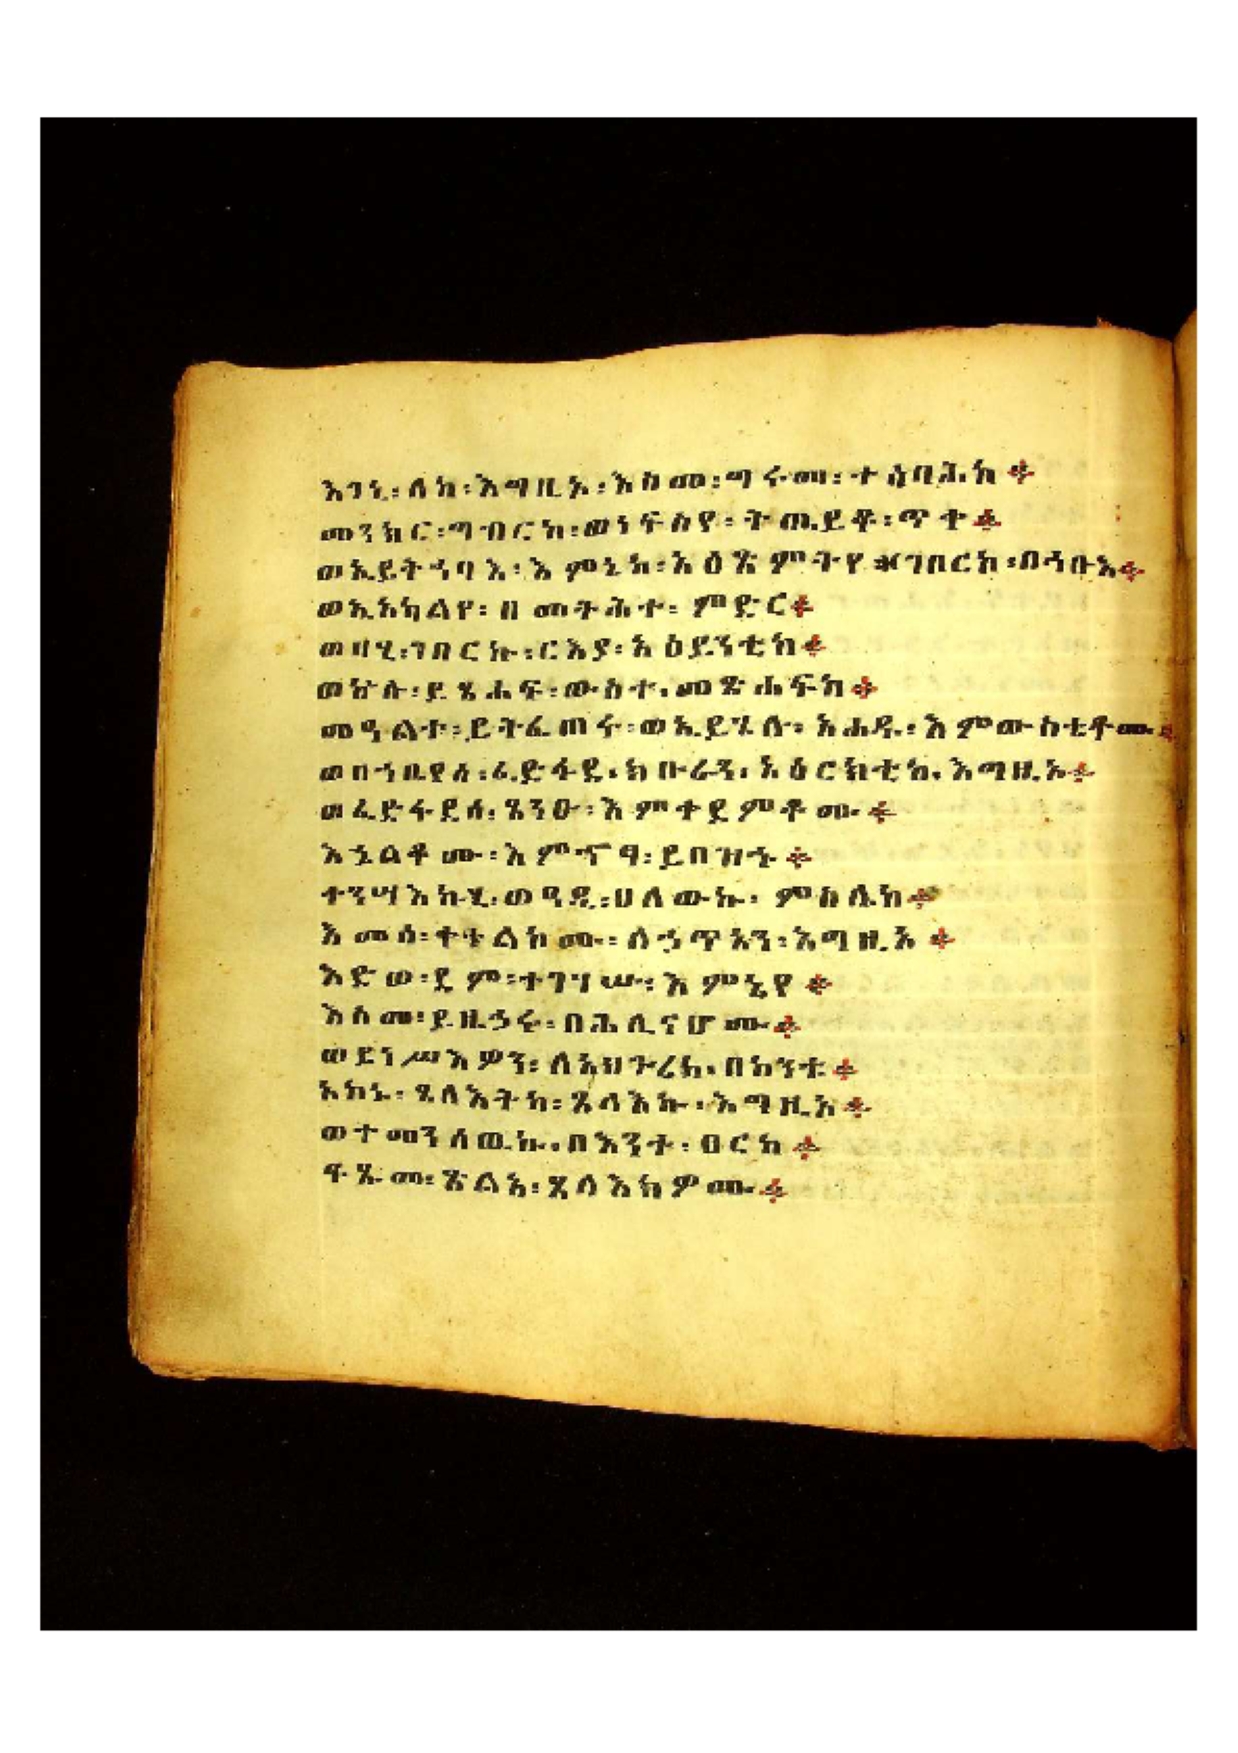 እገኒ፡ለከ፡እግዚኦ፡እስመ፡ግሩመ፡ተሰባሕከ።
መንክር፡ግብርከ፡ወነፍስየ፡ትጤይቆ፡ጥቀ።
ወኢይትኀባእ፡እምኔከ፡አዕጽምትየ፡ዘገበርከ፡በኅቡእ።
ወኢአካልየ፡ዘመትሕተ፡ምድር።
ወዛሂ፡ገበርኩ፡ርእያ፡አዕይንቲከ።
ወኵሉ፡ይጼሐፍ፡ውስተ፡መጽሐፍከ።
መዓልተ፡ይትፈጠሩ፡ወኢይሄሉ፡አሐዱ፡እምውስቴቶሙ።
ወበኀቤየሰ፡ፈድፋደ፡ክቡራን፡አዕርክቲከ፡እግዚኦ።
ወፈድፋደሰ፡ጸንዑ፡እምቀደምቶሙ።
እኄልቆሙ፡እምኆፃ፡ይበዝኁ።
ተንሣእኩሂ፡ወዓዲ፡ሀለውኩ፡ምስሌከ።
እመሰ፡ቀተልኮሙ፡ለኃጥአን፡እግዚኦ።
እድወ፡ደም፡ተገሃሡ፡እምኔየ።
እስመ፡ይዜኃሩ፡በሕሊናሆሙ።
ወይነሥእዎን፡ለአህጉረከ፡በከንቱ።
አኮኑ፡ጸላእትከ፡ጸላእኩ፡እግዚኦ።
ወተመንሰዉኩ፡በእንተ፡ፀርከ።
ፍጹመ፡ጽልአ፡ጸላእክዎሙ።